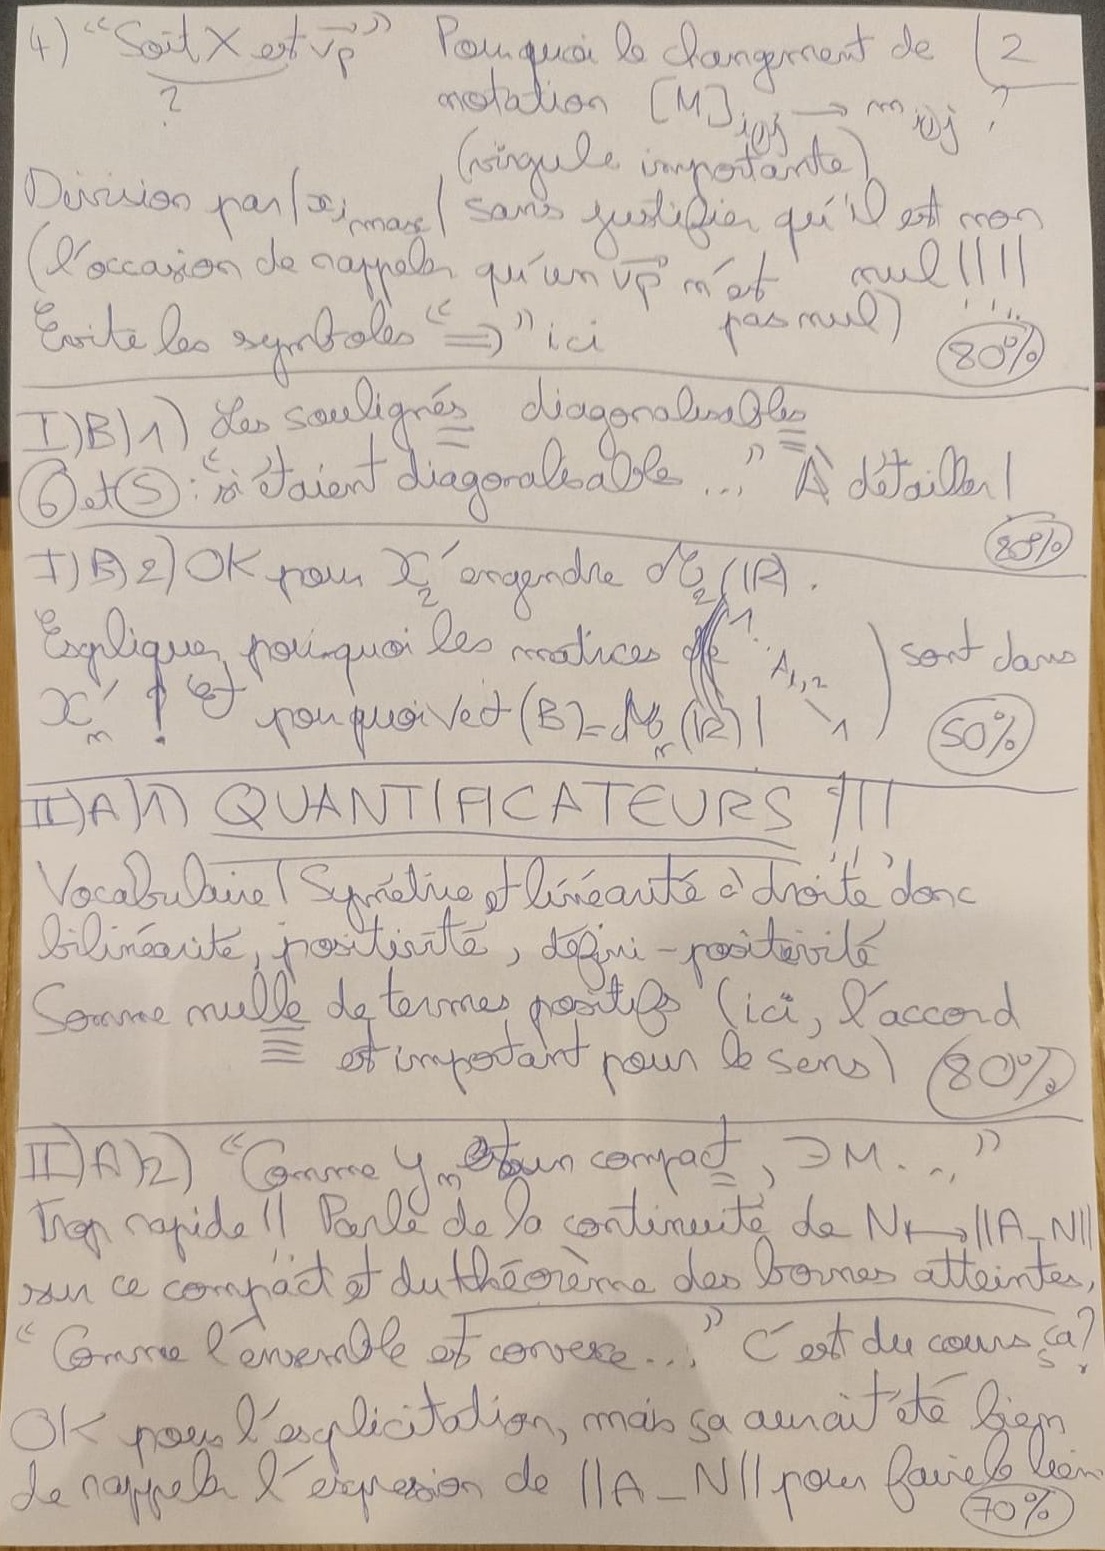 4) "Soit X est v⃗p" Pourquoi le changement de (2
? notation [M]i,j → m i,j ?
(virgule importante)
Division par |x i max| sans justifier qu'il est non
(l'occasion de rappeler qu'un v⃗p n'est pas nul) nul !!!!
Evite les symboles "⇒" ici 80%
I)B)1) Les soulignés diagonalisables
6 et 5 : "s'étaient diagonalisable..." À détailler !
80%
I)B)2) OK pour X'2 engendre M2(IR).
Expliquer pourquoi les matrices (1 A1,2 1) sont dans
X'n ! Et pourquoi Vect(B)=Mn(IR) ! 50%
II)A)1) QUANTIFICATEURS !!!!
Vocabulaire ! Symétrie et linéarité à droite donc
bilinéarité, positivité, défini-positivité
Somme nulle de termes positifs (ici, l'accord
est important pour le sens) 80%
II)A)2) "Comme Yn est un compact, ∃M..."
Trop rapide !! Parle de la continuité de N↦||A-N||
sur ce compact et du théorème des bornes atteintes,
"Comme l'ensemble est convexe..." C'est du cours ça?
OK pour l'explicitation, mais ça aurait été bien
de rappeler l'expression de ||A-N|| pour faire le lien
70%